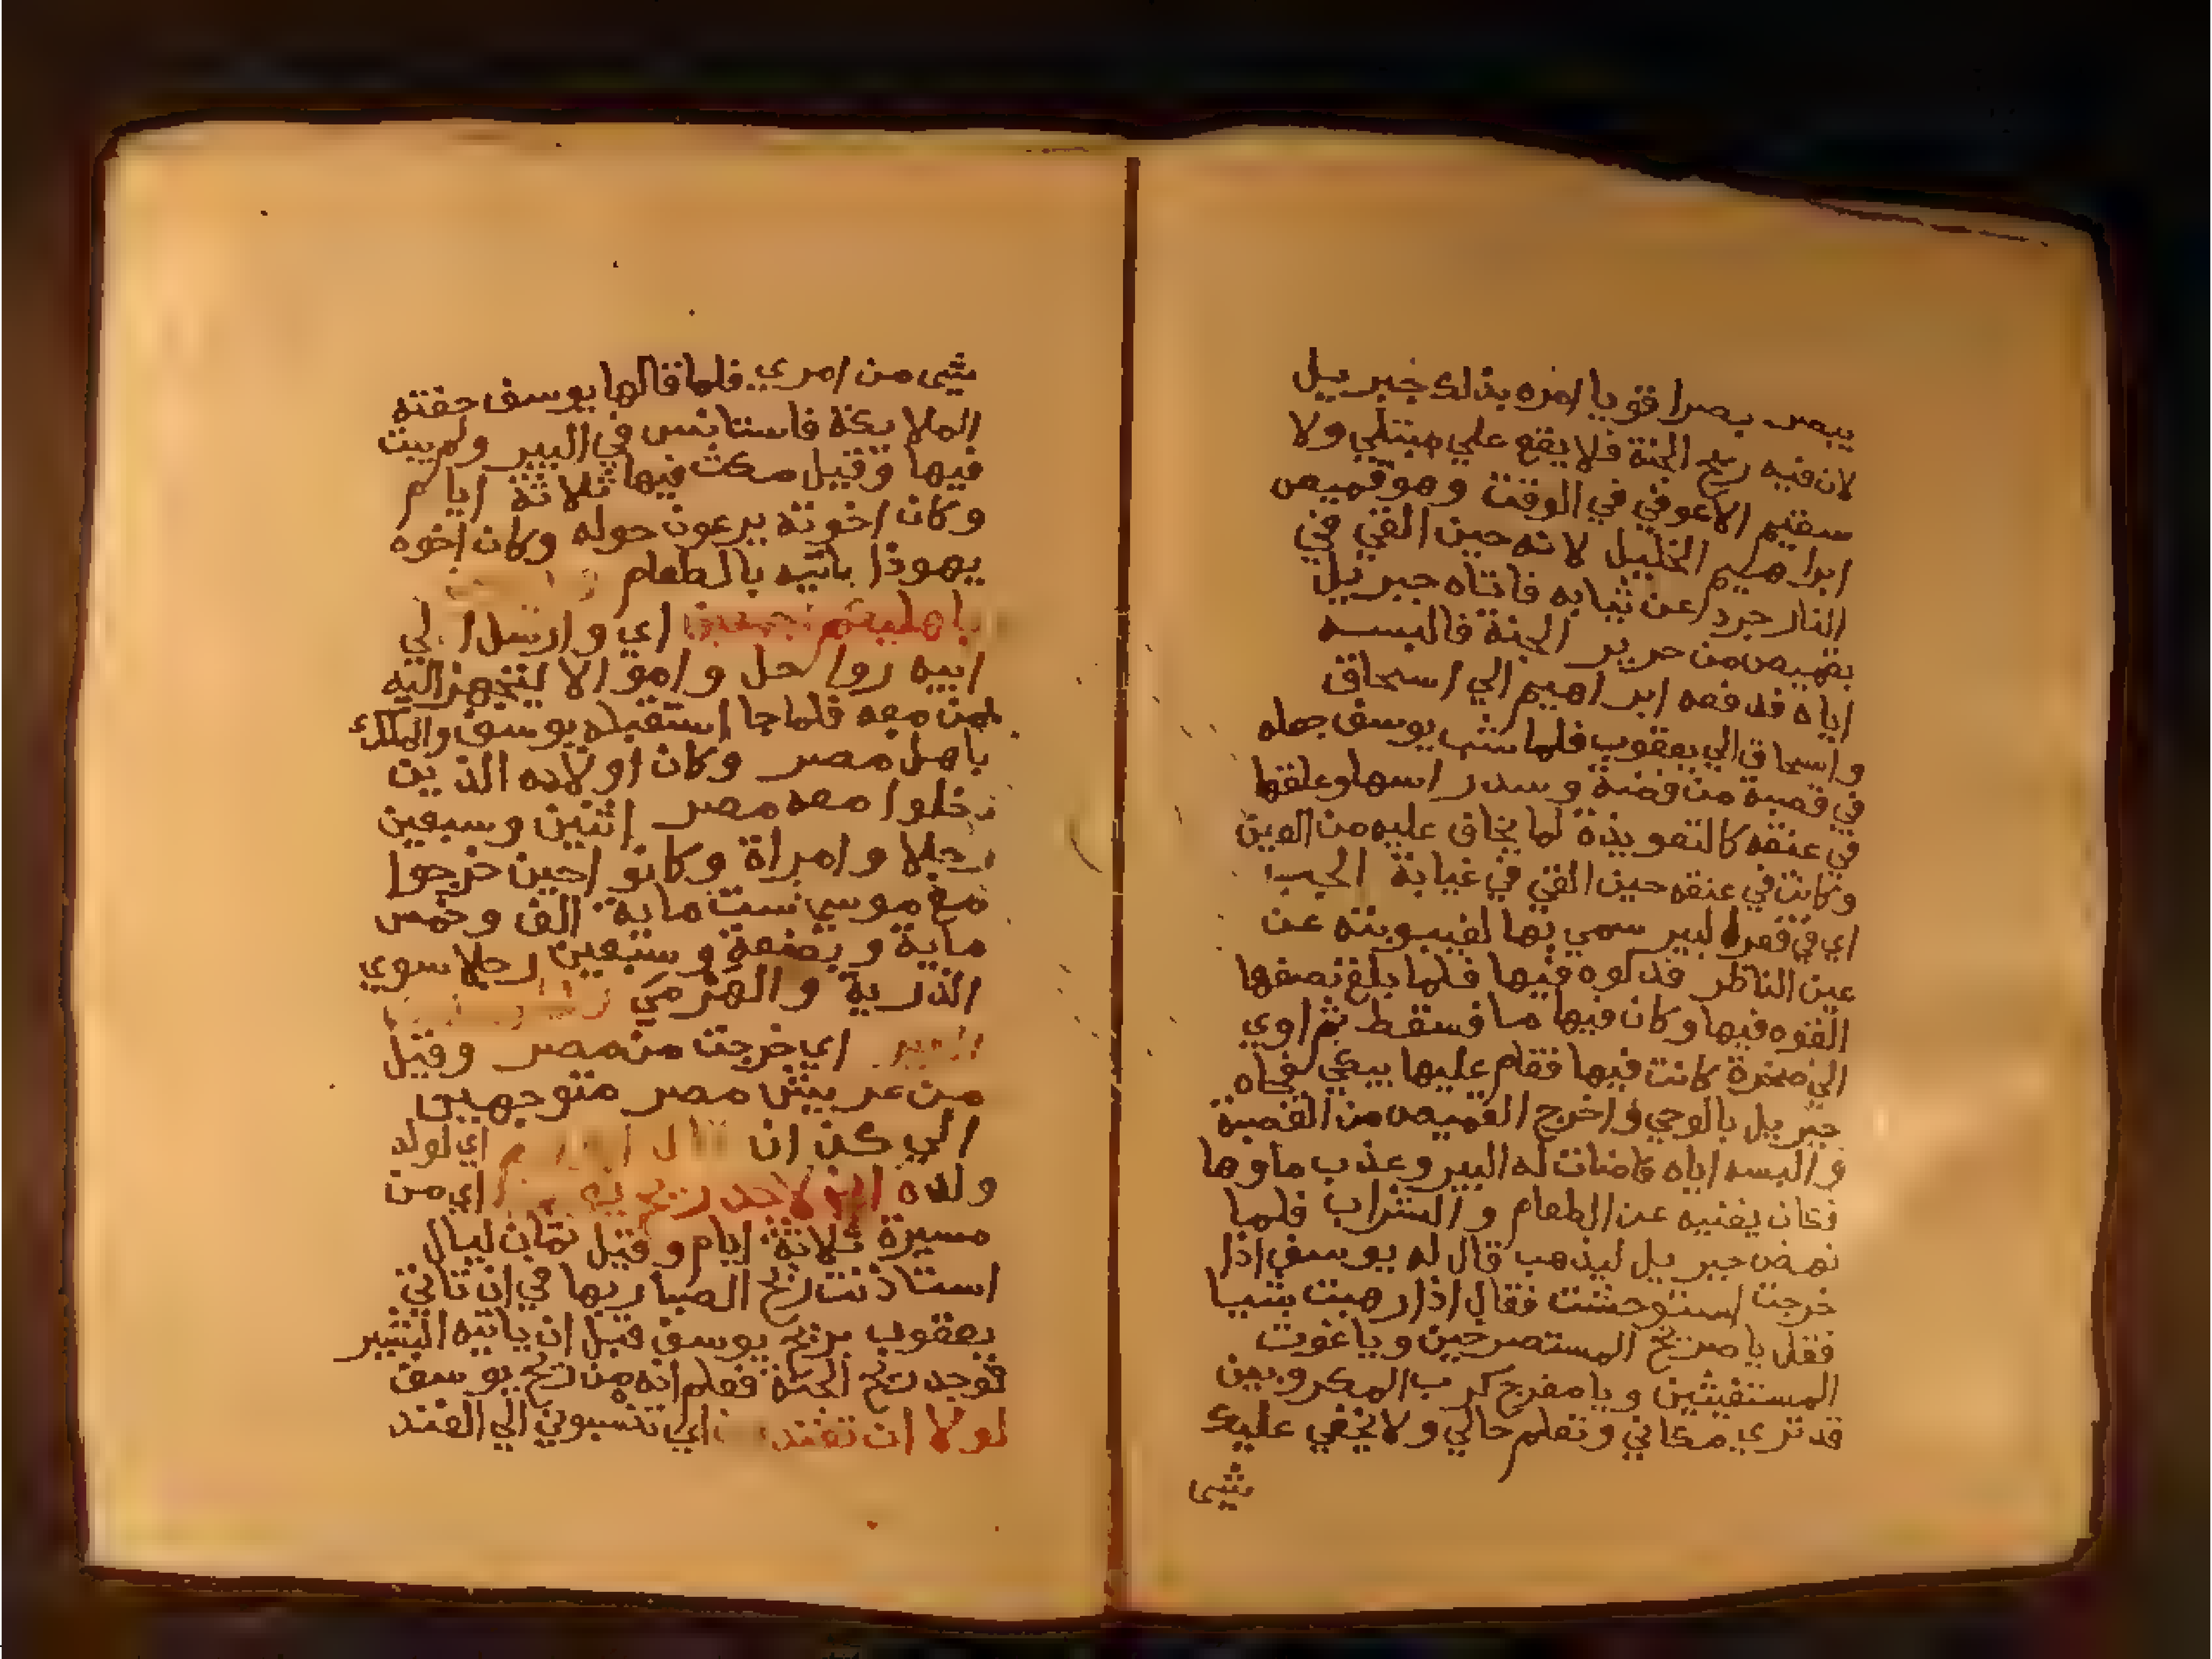 يبصر بصرا قويا امره بذلك جبريل
لان فيه ريح الجنة فلا يقع علي مبتلي ولا
سقيم الاعوفي في الوقت وهو قميص
ابراهيم الخليل لانه حين القي في
النار جرد عن ثيابه فاتاه جبريل
بقميص من حرير الجنة فالبسه
اياه فدفعه ابراهيم الي اسحاق
واسحاق الي يعقوب فلما شب يوسف جعله
في قصبة من فضة وسد راسها وعلقها
في عنقه كالتعويذة لما يخاف عليه من العين
وكانت في عنقه حين القي في غيابة الجب
اي في قعر البير سمي بها لغيبوبته عن
عين الناظر فدلوه فيها فلما بلغ نصفها
القوه فيها وكان فيها ما فسقط ثم اوي
الي صخرة كانت فيها فقام عليها يبكي فجاه
جبريل بالوحي واخرج القميص من القصبة
والبسه اياه فاضات له البير وعذب ماوها
فكان يغنيه عن الطعام والشراب فلما
نهض جبريل ليذهب قال له يوسف اذا
خرجت استوحشت فقال اذا رهبت شيا
فقل يا صريخ المستصرخين ويا غوث
المستغيثين ويا مفرج كرب المكروبين
قد تري مكاني وتعلم حالي ولا يخفي عليك
شي
شي من امري فلما قالها يوسف حفته
الملايكة فاستانس في البير ولم يبت
فيها وقيل مكث فيها ثلاثة ايام
وكان اخوته يرعون حوله وكان اخوه
يهوذا ياتيه بالطعام
باهليكم اجمعين اي وارسل الي
ابيه رواحل واموالا ليتجهز اليه
بمن معه فلما جا استقبله يوسف والملك
باهل مصر وكان اولاده الذين
دخلوا معه مصر اثنين وسبعين
رجلا وامراة وكانوا حين خرجوا
مع موسي ست ماية الف وخمس
ماية وبضعة وسبعين رجلا سوي
الذرية والهرمي
العير اي خرجت من مصر وقيل
من عريش مصر متوجهين
الي كنعان قال ابوهم اي لولد
ولده اني لاجد ريح يوسف اي من
مسيرة ثلاثة ايام وقيل ثمان ليال
استاذنت ريح الصبا ربها في ان تاتي
يعقوب بريح يوسف قبل ان ياتيه البشير
فوجد ريح الجنة فعلم انه من ريح يوسف
لولا ان تفندون اي تنسبوني الي الفند